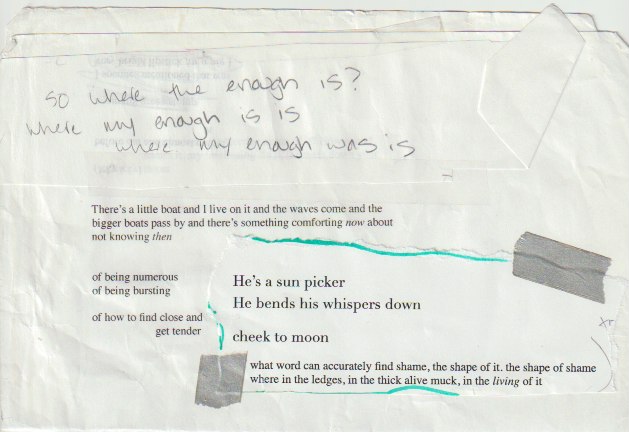 so where the enough is?
where my enough is is
where my enough was is
There's a little boat and I live on it and the waves come and the
bigger boats pass by and there's something comforting now about
not knowing then
of being numerous
of being bursting
of how to find close and
get tender
He's a sun picker
He bends his whispers down
cheek to moon
what word can accurately find shame, the shape of it. the shape of shame
where in the ledges, in the thick alive muck, in the living of it